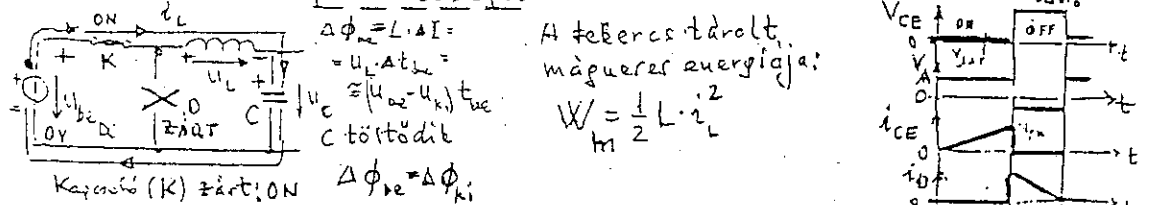 ON i_L
+ K + u_L
+ u_be
D
ZÁRT
+ C u_c
0V
Kapcsoló (K) zárt: ON
Δϕ_be = L·ΔI =
= u_L·Δt_be =
≅ (u_be - u_ki) t_be
C töltődik
Δϕ_be = Δϕ_ki
A tekercs tárolt
mágneses energiája:
W_m = 1/2 L·i_L^2
V_CE ON OFF
0 t
V_A
0 t
i_CE
0 t
i_D
0 t